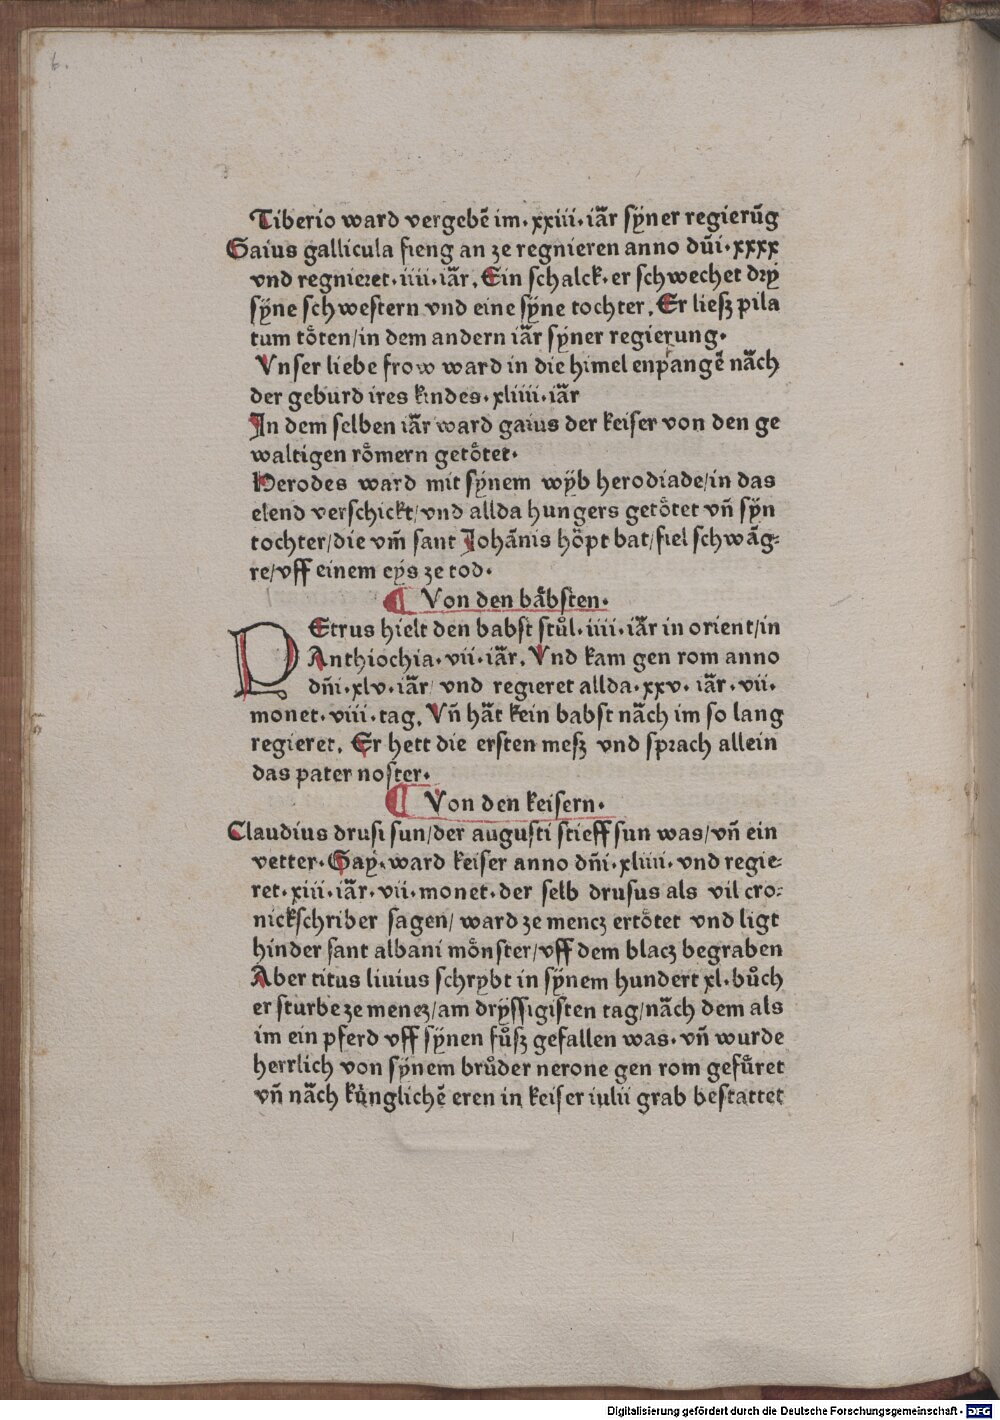 6.
Tiberio ward vergebē im·xxiii·iãr sÿner regierūg
Gaius gallicula fieng an ze regnieren anno dñi·xxxx
vnd regnieret·iiii·iãr. Ein schalck·er schwechet drÿ
sÿne schwestern vnd eine sÿne tochter. Er liesz pila
tum töten/in dem andern iãr sÿner regierung·
Vnser liebe frow ward in die himel enpangē nãch
der geburd ires kindes·xliiii·iãr
In dem selben iãr ward gaius der keiser von den ge
waltigen römern getötet·
Herodes ward mit sÿnem wÿb herodiade/in das
elend verschickt/vnd allda hungers getötet vñ sÿn
tochter/die vm̄ sant Johãnis höpt bat/fiel schwãg⸗
re/vff einem eÿs ze tod·
¶ Von den bäbsten·
PEtrus hielt den babst stůl·iiii·iãr in orient/in
Anthiochia·vii·iãr. Vnd kam gen rom anno
dñi·xlv·iãr/ vnd regieret allda·xxv·iãr·vii·
monet·viii·tag. Vñ hãt kein babst nãch im so lang
regieret. Er hett die ersten mesz vnd sprach allein
das pater noster·
¶ Von den keisern·
Claudius drusi sun/der augusti stieff sun was/vñ ein
vetter·Gaÿ·ward keiser anno dñi·xliiii·vnd regie⸗
ret·xiii·iãr·vii·monet·der selb drusus als vil cro⸗
nickschriber sagen/ ward ze mencz ertötet vnd ligt
hinder sant albani mönster/vff dem blacz begraben
Aber titus liuius schrybt in sÿnem hundert xl·bůch
er sturbe ze mencz/am drÿssigisten tag/nãch dem als
im ein pferd vff sÿnen fůsz gefallen was·vñ wurde
herrlich von sÿnem brůder nerone gen rom gefüret
vñ nãch künglichē eren in keiser iulii grab bestattet
Digitalisierung gefördert durch die Deutsche Forschungsgemeinschaft - DFG